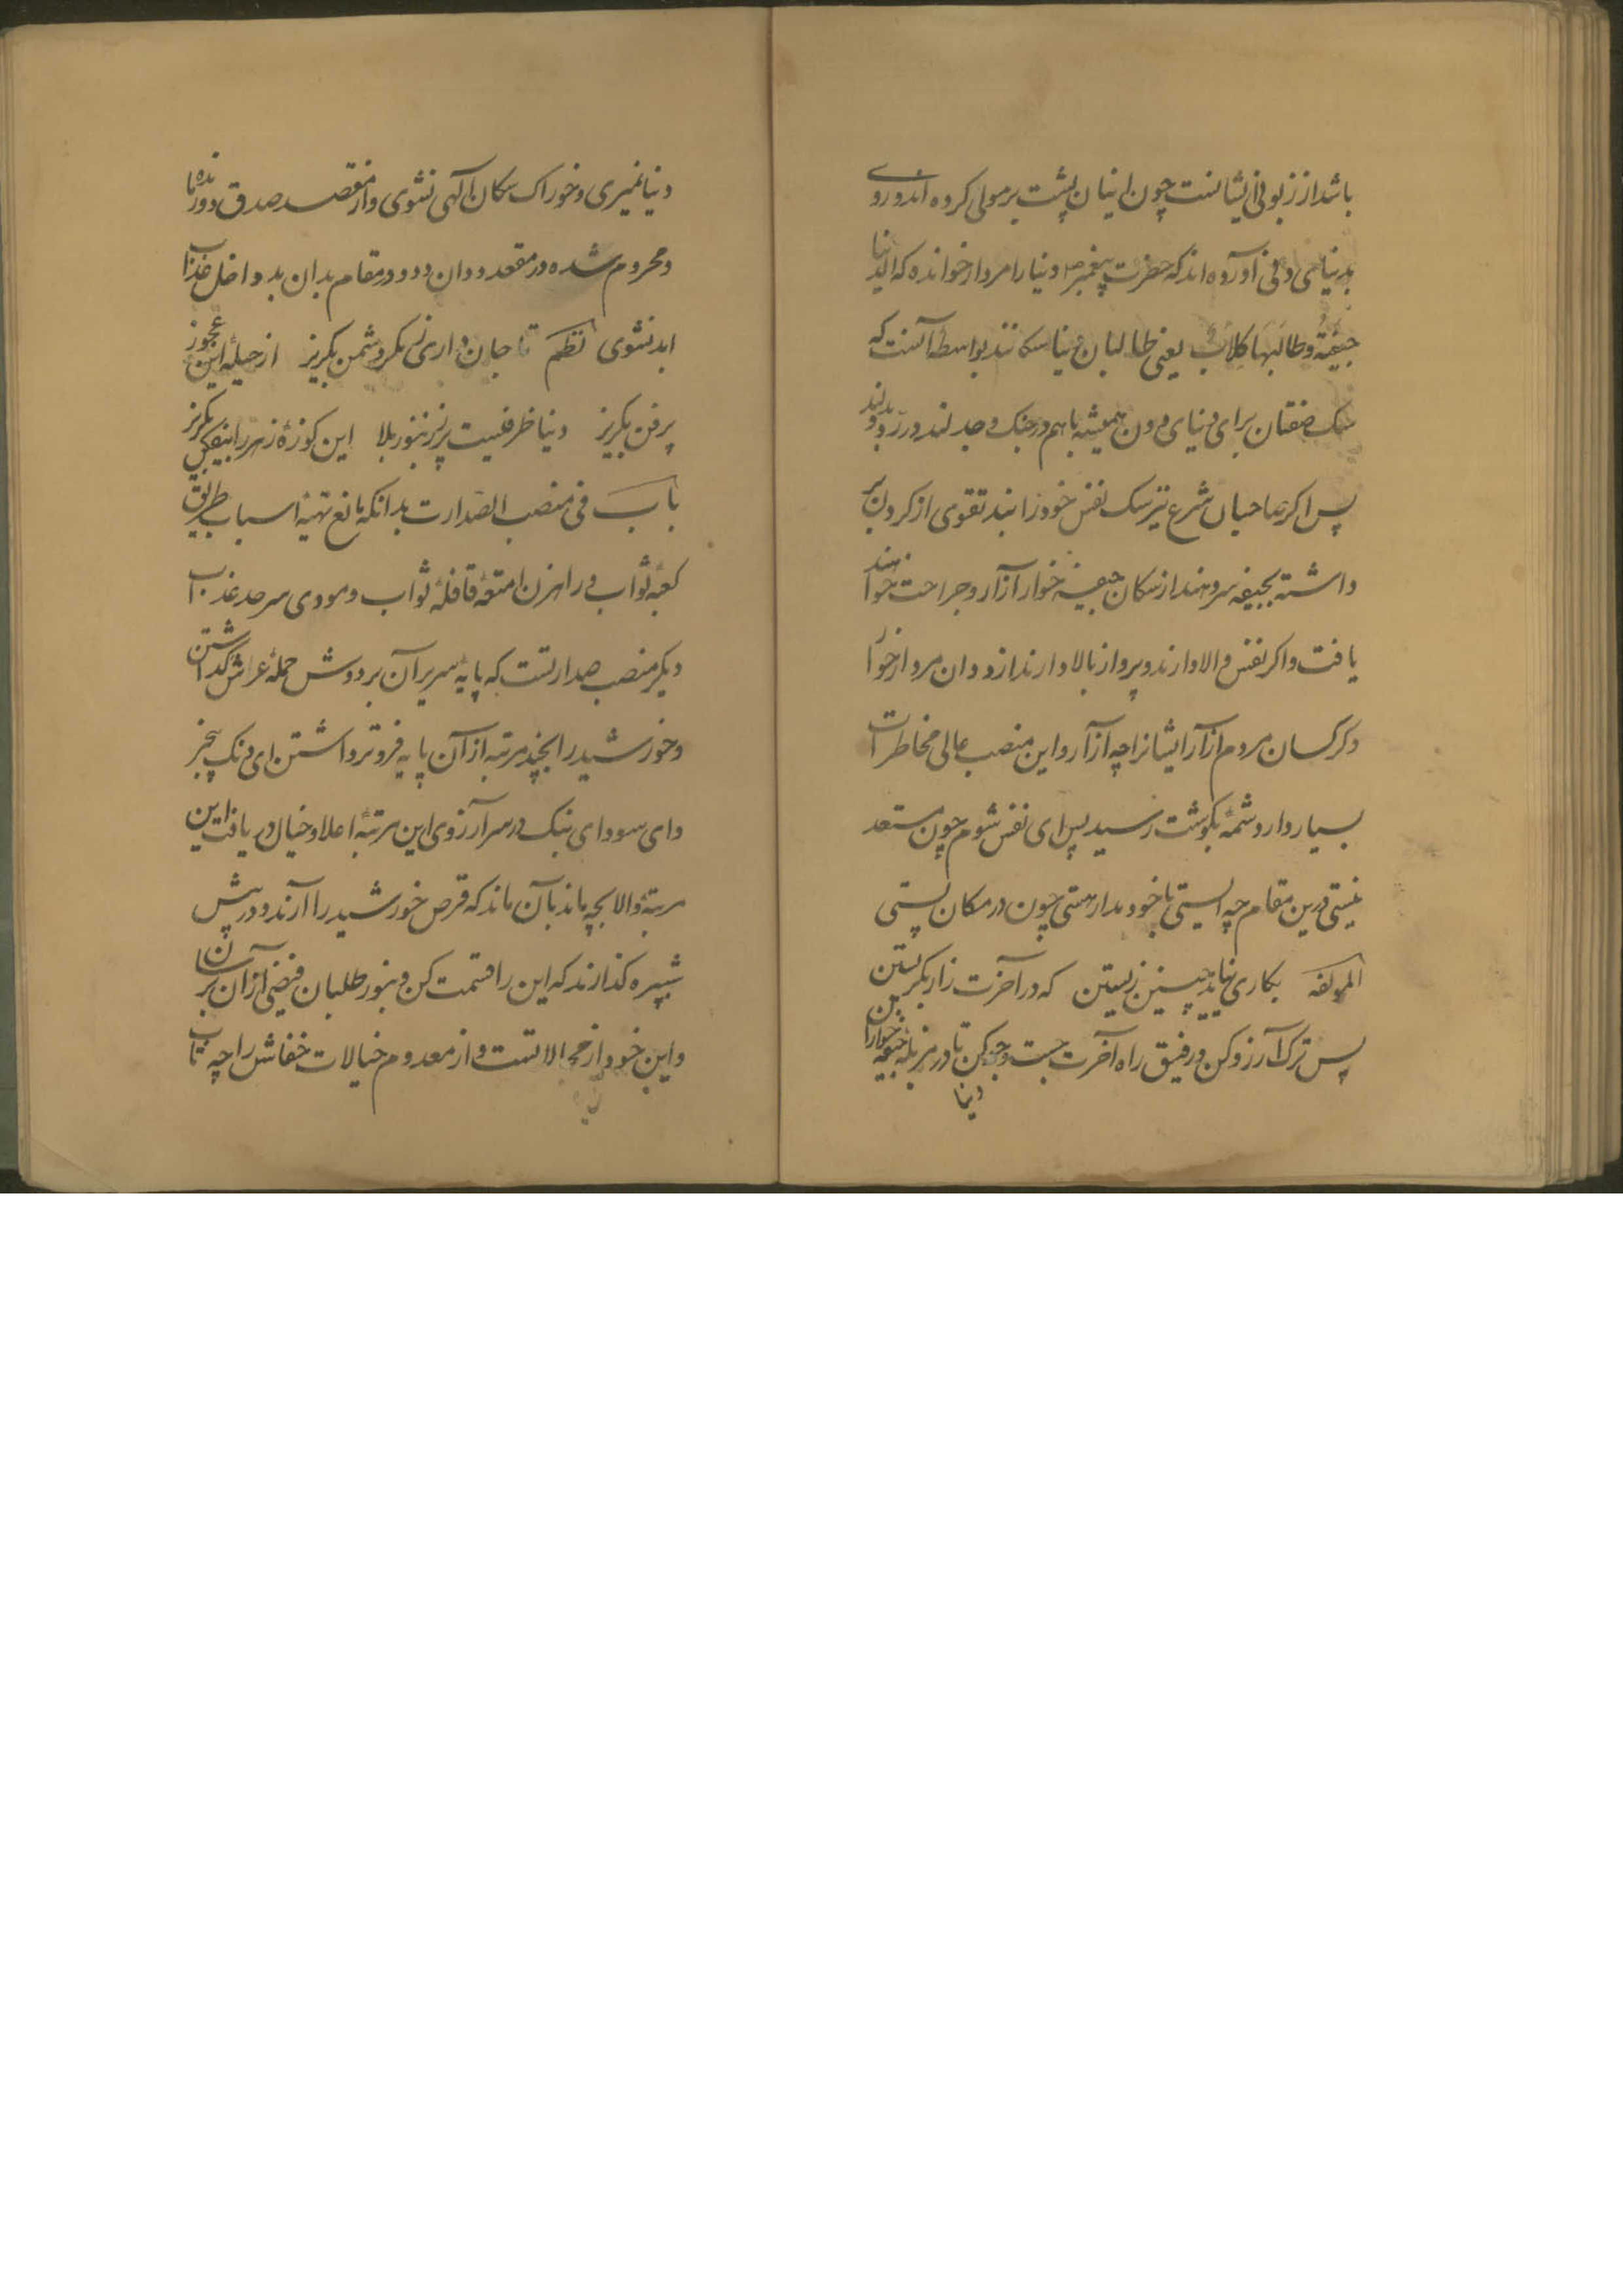 باشد از زبونی ایشانست چون اینان پشت بر مولی کرده اند و روی
بدنیای دنی آورده اند که حضرت پیغمبر ص دنیا را مردار خوانده که الدنیا
جیفة و طالبها کلاب یعنی طالبان دنیا سکانند بواسطه آنست که
سک صفتان برای دنیای دون همیشه باهم در جنک و جدلند و در رد و بدلند
پس اکر صاحبان شرع نیز سک نفس خود را بند تقوی از کردن بر
داشته بجیفه سر دهند از سکان جیفه خوار آزار و جراحت خواهند
یافت و اکر نفس والا دارند و پرواز بالا دارند از ددان مردار خوار
و کرکسان مردم آزار ایشانرا چه آزار و این منصب عالی مخاطرات
بسیار دارد و شمهٔ بکوشت رسید پس ای نفس شوم چون مستعد
نیستی درین مقام چه ایستی تا خود بدار هستی چون در مکان پستی
لمولفه بکاری نیاید چنین زیستن که در آخرت زار بکریستن
پس ترک آرزو کن و رفیق راه آخرت جست و جو کن تا در مزبلهٔ جیفه خوارا ین
دنیا
دنیا نمیری و خوراک سکان آلهی نشوی و از مقصد صدق دور مانده
و محروم شده در مقعد ددان و دد و در مقام بدان بد داخل عذاب
ابد نشوی نظم تا جان داری ز مکر دشمن بکریز از حیلهٔ این عجوز
پر فن بکریز دنیا ظرفیست پر ز زنبور بلا این کوزهٔ زهر را بیفکن بکریز
باب فی منصب الصدارت بدانکه مانع تهیهٔ اسباب طریق
کعبهٔ ثواب و راهزن امتعهٔ قافلهٔ ثواب و مودی سرحد عذاب
دیکر منصب صدارتست که پایهٔ سریر آن بر دوش حملهٔ عرش کذاشتن
و خورشید را بچند مرتبه از آن پایه فروتر داشتن ای دنک بیخبر
و ای سودای بنک در سر آرزوی این مرتبهٔ اعلا و خیال دریافت این
مرتبهٔ والا بچه ماند بآن ماند که قرص خورشید را آرند و در پیش
شپره کذارند که این را قسمت کن و بنور طلبان فیضی از آن برسان
و این خود از محالاتست و از معدوم خیالات خفاش را چه تاب